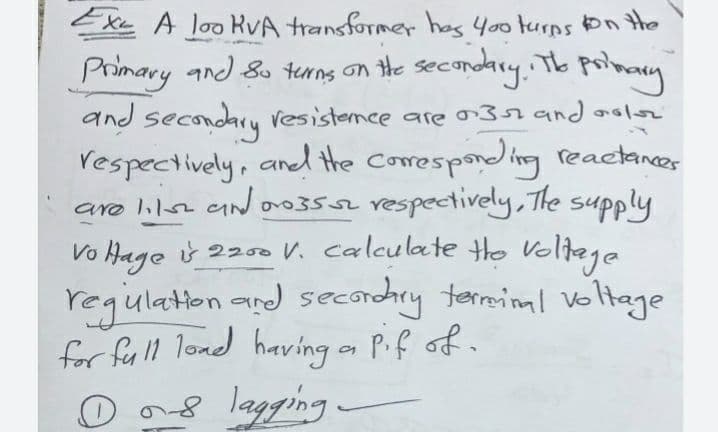 Ex: A 100 KVA transformer has 400 turns on the
Primary and 80 turns on the secondary. The primary
and secondary resisternce are 0.3Ω and 0.01Ω
respectively, and the corresponding reactances
are 1.1Ω and 0.035Ω respectively, The supply
voltage is 2200 V. calculate the voltage
regulation and secondary terminal voltage
for full load having a P.f of.
① 0.8 lagging